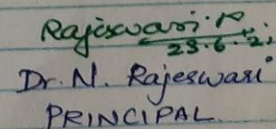 Rajeswari. N
23.6.2
Dr. N. Rajeswari
PRINCIPAL